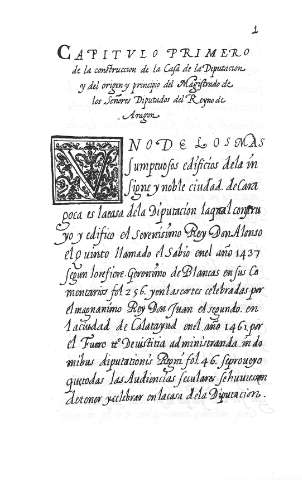 1
CAPITVLO PRIMERO
de la construccion de la Casa de la Diputacion
y del origen y principio del Magistrado de
los Señores Diputados del Reyno de
Aragon
VNO DE LOS MAS
sumptuosos edificios de la in
signe y noble ciudad. de Cara
goca es la casa de la Diputacion la qual constru
yo y edifico el Serenissimo Rey Don Alonso
el Quinto llamado el Sabio en el año 1437
segun lo refiere Geronimo de Blancas en sus Co
montarios fol 256. y en las cortes celebradas por
el magnanimo Rey Don Juan el segundo. en
la ciudad de Calatayud en el año 1461. por
el Fuero tt.º De iustitia administranda in do
mibus diputationis Regni fol 46. se proueyo
que todas las Audiencias seculares se huuiessen
de tener y celebrar en la casa de la Diputacion.